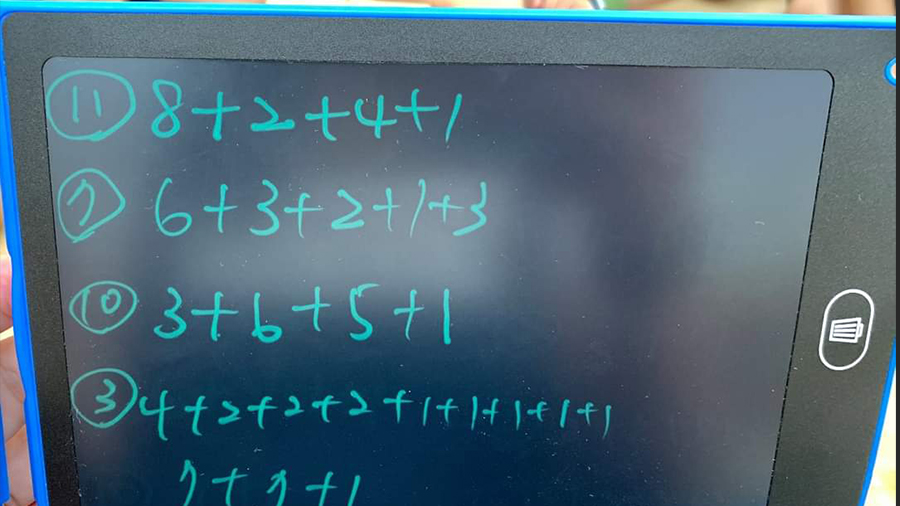 ⑪ 8+2+4+1
⑦ 6+3+2+1+3
⑩ 3+6+5+1
③ 4+2+2+2+1+1+1+1+1
7+7+1